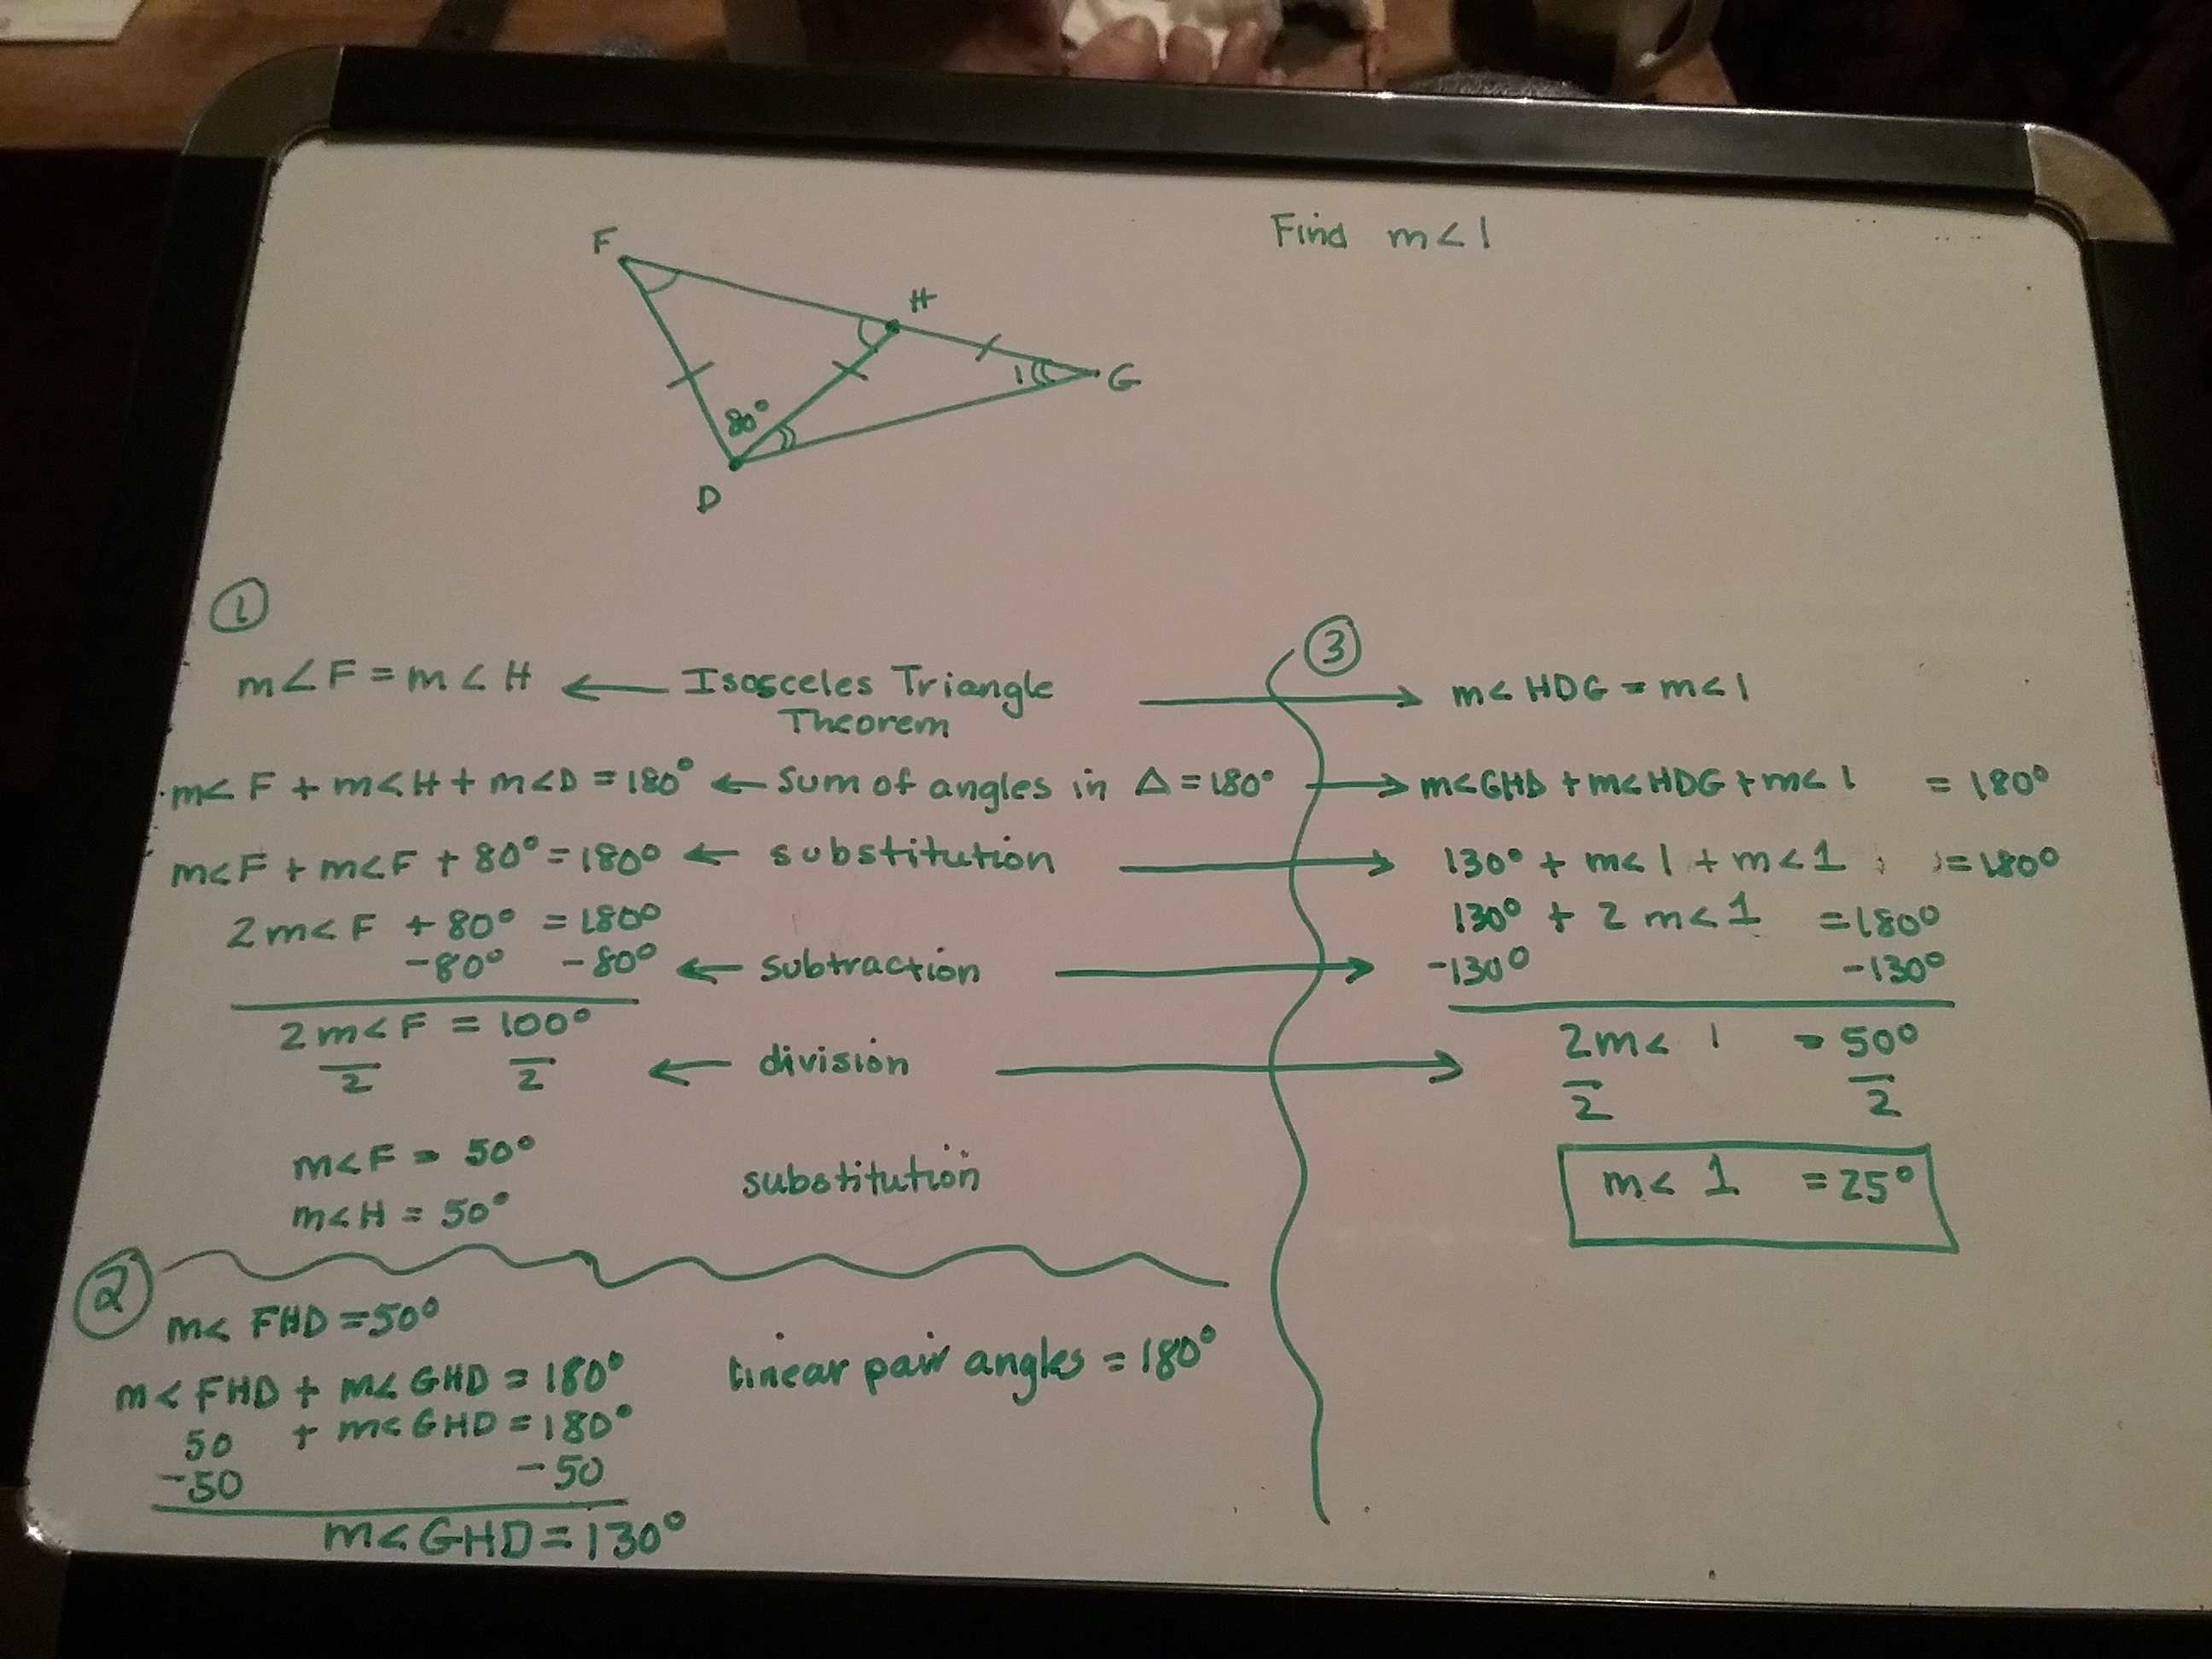 Find m<1
F
H
G
1
80°
D
①
m∠F = m<H ← Isosceles Triangle
Theorem
m<F + m<H + m<D = 180° ← Sum of angles in △ = 180°
m<F + m<F + 80° = 180° ← substitution
2m<F + 80° = 180°
-80° -80° ← subtraction
2m<F = 100°
2 2 ← division
m<F = 50°
m<H = 50° substitution
②
m< FHD = 50°
m< FHD + m< GHD = 180° Linear pair angles = 180°
50 + m< GHD = 180°
-50 -50
m< GHD = 130°
③
→ m< HDG = m<1
→ m<GHD + m<HDG + m<1 = 180°
→ 130° + m<1 + m<1 = 180°
130° + 2m<1 = 180°
→ -130° -130°
2m<1 = 50°
→ 2 2
m<1 = 25°